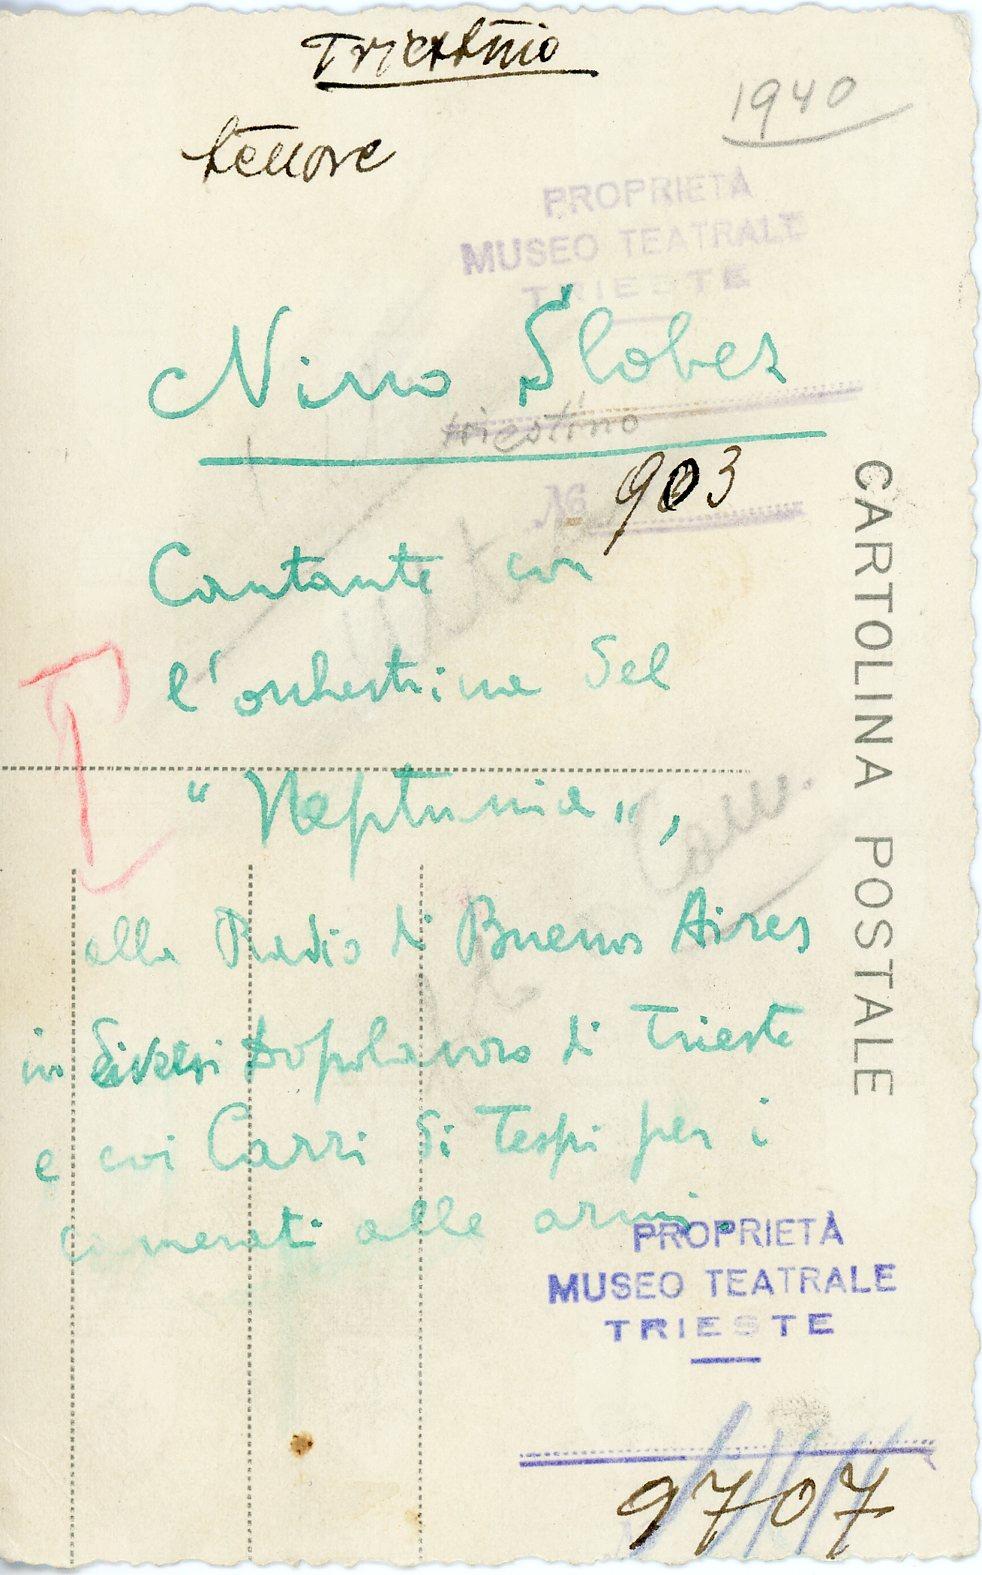 Triestino
1940
tenore
PROPRIETÀ
MUSEO TEATRALE
TRIESTE
Nino Slobez
triestino
No 903
Cantante con
l'orchestrina del
"Neptunia",
alla Radio di Buenos Aires
in diversi Dopolavoro di Trieste
e coi Carri di Tespi per i
camerati alle armi.
CARTOLINA POSTALE
PROPRIETÀ
MUSEO TEATRALE
TRIESTE
9707